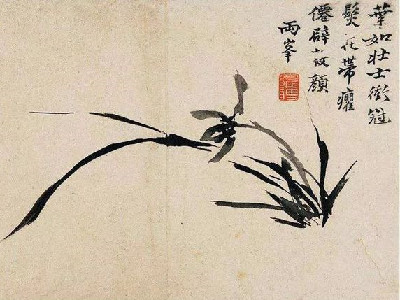 葉如壯士衝冠
髮花帶癯
僊辟穀顏
兩峯